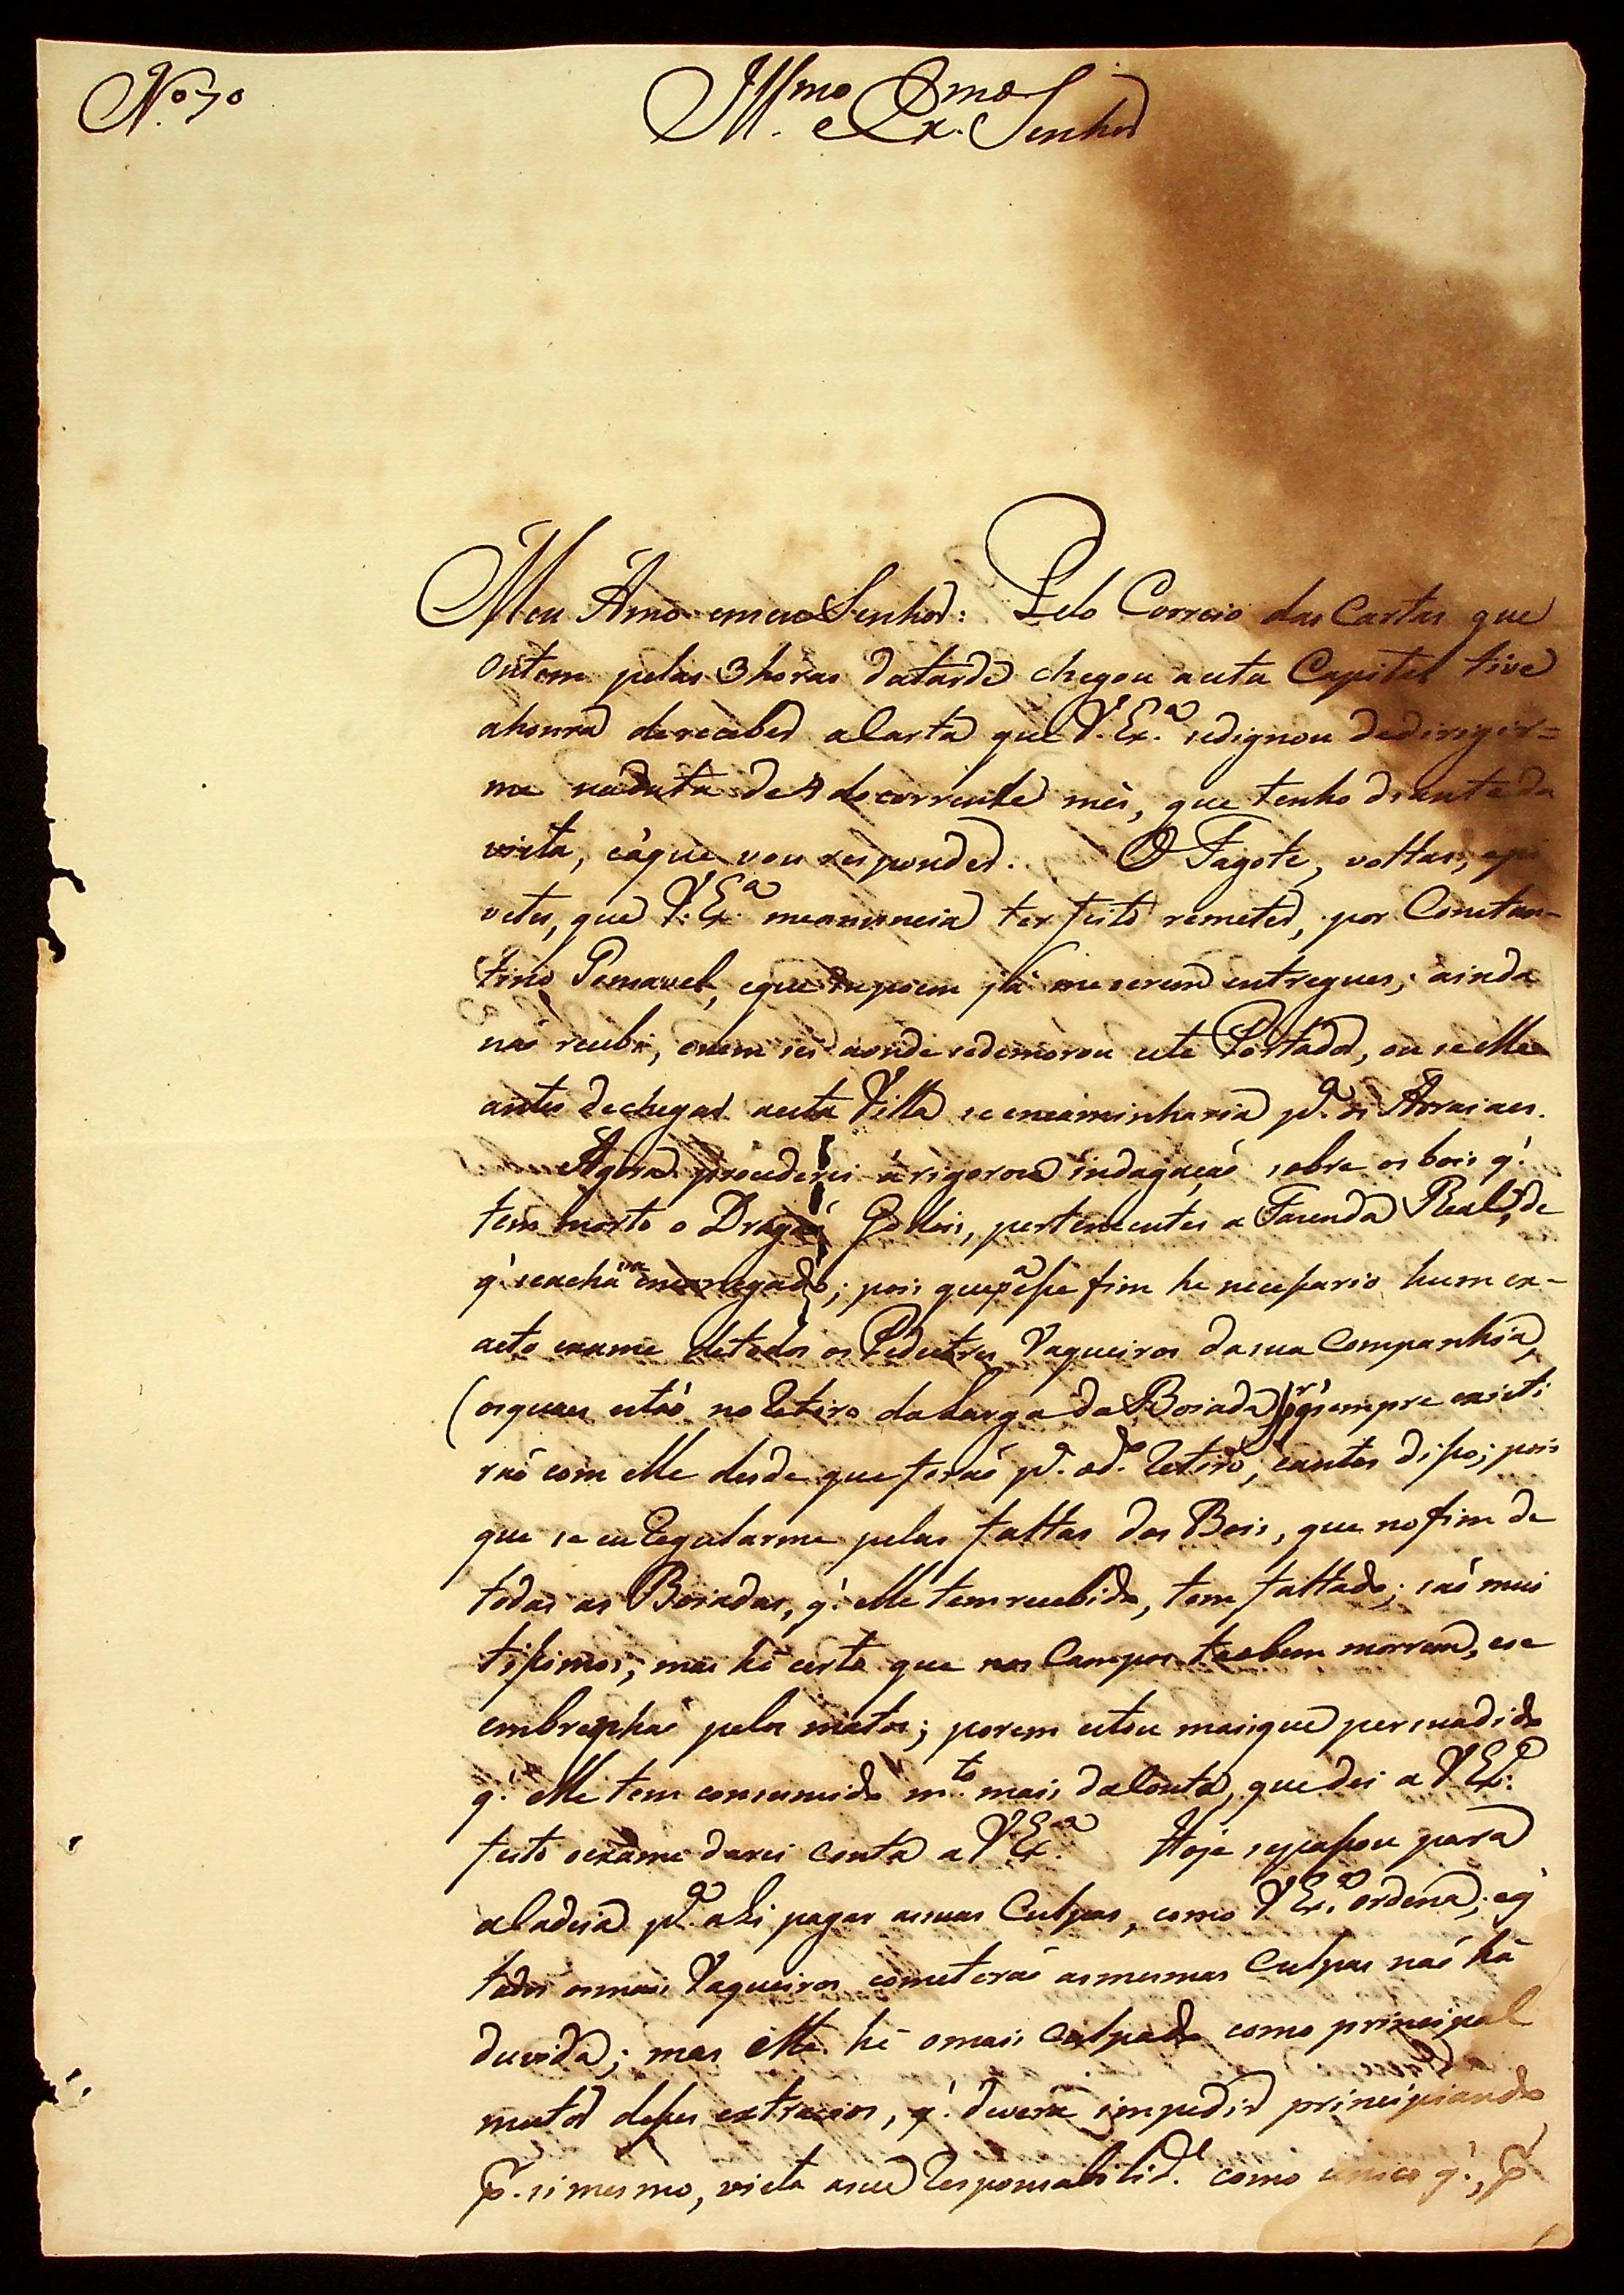 N.º 70
Ill.mo e Ex.mo Senhor
Meu Amo emeu Senhor: Pelo Correio das Cartas que
ontem pelas 3 horas datarde chegou aesta Capital tive
ahonra dereceber aCarta que V. Ex.ª sedignou dedirigir=
me nadata de 4 do corrente mês, que tenho diante da
vista, eàque vou responder. O Fagote, voltas, epi
vetes, que V. Ex.ª meanuncia ter feito remeter, por Constan-
tino Pemavel, eque supoem já me serem entregues; ainda
naõ recebi, enem sei aonde sedemorou este Portador, ou se elle
antes dechegar aesta Villa se encaminharia p.ª os Arraiaes.
Agora procederei á rigoroza indagaçaõ sobre os bois q'.
tem morto o Dragaõ Godois, pertencentes a Fazenda Real, de
q' seachava encarregado; pois que p.ª esse fim he necessario hum ex-
acto exame detodos os Pedestres Vaqueiros dasua Companhia,
(osquaes estaõ no Retiro da barga da Boiada) q' sempre existi
raõ com elle desde que foraõ p.ª o d.º Retiro, eantes disso; pois
que se eu Regularme pelas faltas dos Bois, que nofim de
todas as Boiadas, q'. elle tem recebido, tem faltado; saõ mui
tissimos; mas hé certo que nos Campos taobem morrem, ese
embrenhaõ pelos matos; porem estou maisque persuadido
q'. elle tem consumido m.to mais daConta, que dei a V. Ex.ª
feito oexame darei conta a V. Ex.ª Hoje sepassou para
aCadeia p.ª ahi pagar assuas Culpas, como V. Ex.ª ordena; eq'
todos osmais Vaqueiros cometeraõ asmesmas Culpas naõ há
duvida; mas elle hé omais Culpado como principal
motor desses extravios, q'. devera impedir principiando
p.r si mesmo, vista asua Responsabilid.e como unico q'., p.r